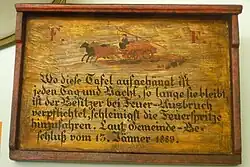 F F
Wo diese Tafel aufgehängt ist
jeden Tag und Nacht, so lange sie bleibt,
ist der Besitzer bei Feuer-Ausbruch
verpflichtet, schleinigst die Feuerspritze
hinzufahren. Laut Gemeinde-Be-
schluß vom 13. Jänner 1889.